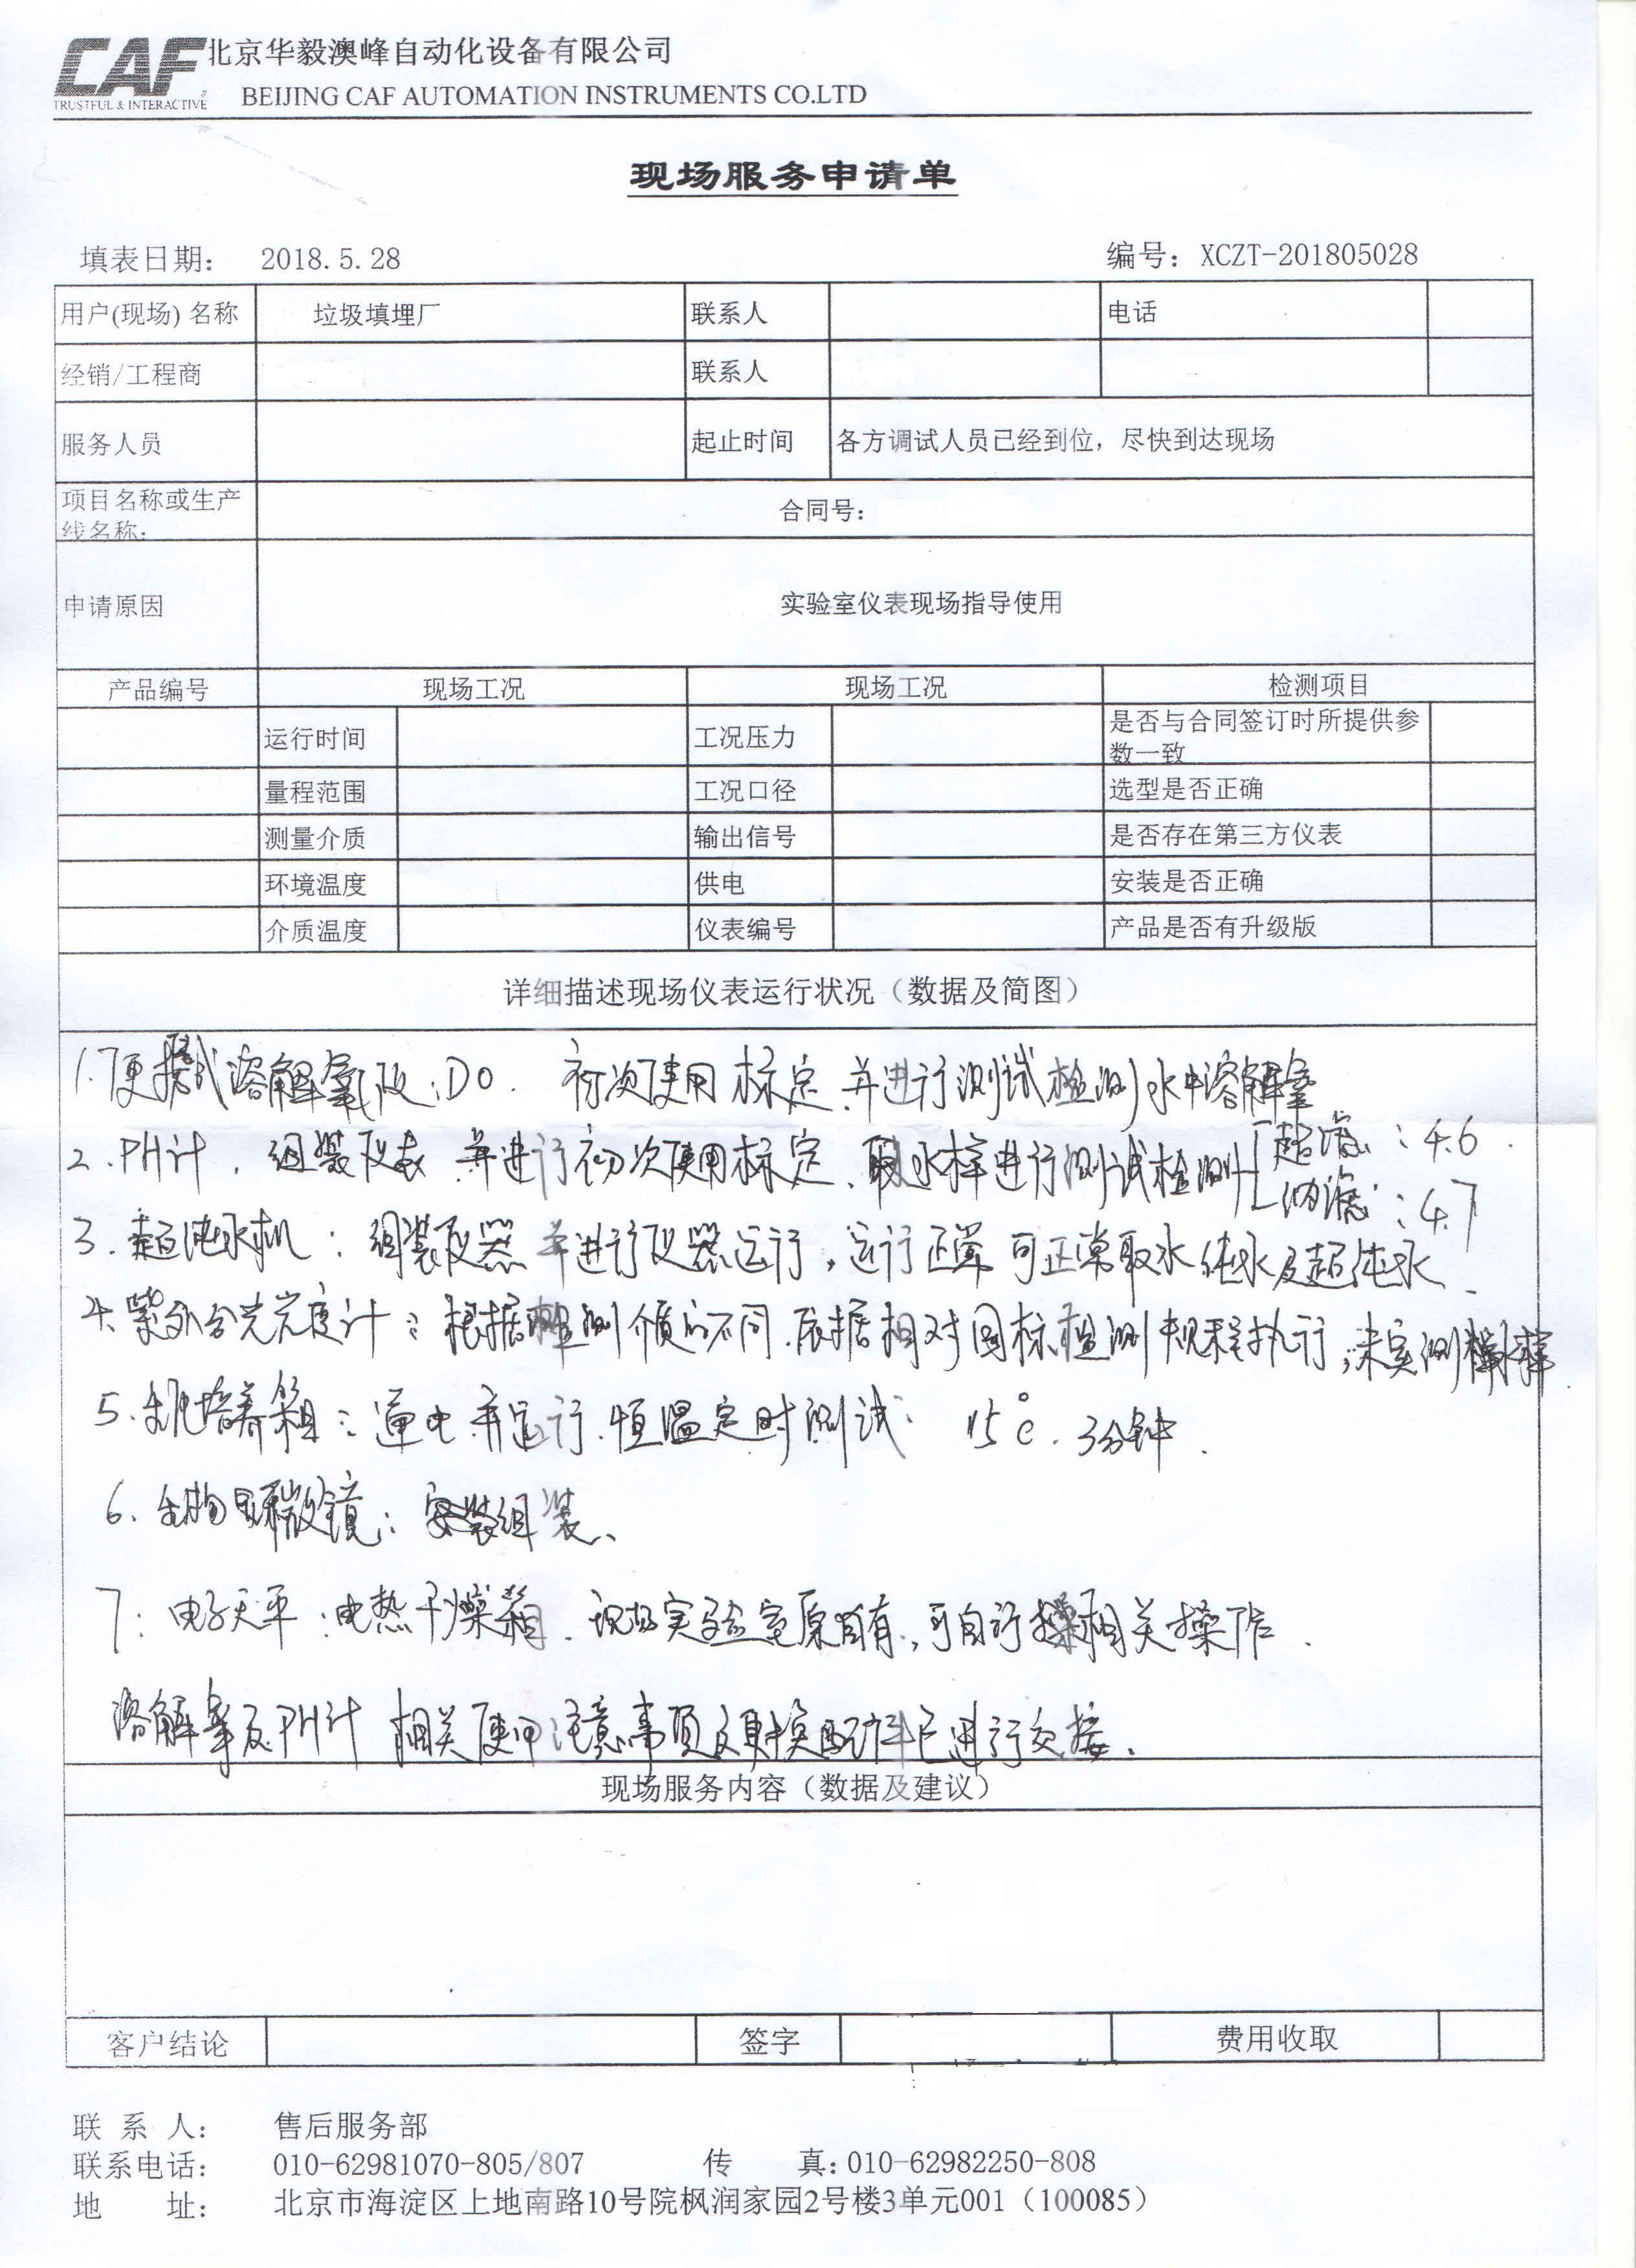 CAF 北京华毅澳峰自动化设备有限公司
TRUSTFUL & INTERACTIVE BEIJING CAF AUTOMATION INSTRUMENTS CO.LTD
现场服务申请单
填表日期： 2018.5.28 编号：XCZT-201805028
用户(现场)名称 垃圾填埋厂 联系人 电话
经销/工程商 联系人
服务人员 起止时间 各方调试人员已经到位，尽快到达现场
项目名称或生产
线名称： 合同号：
申请原因 实验室仪表现场指导使用
产品编号 现场工况 现场工况 检测项目
运行时间 工况压力 是否与合同签订时所提供参
数一致
量程范围 工况口径 选型是否正确
测量介质 输出信号 是否存在第三方仪表
环境温度 供电 安装是否正确
介质温度 仪表编号 产品是否有升级版
详细描述现场仪表运行状况（数据及简图）
1.便携式溶解氧仪：DO. 初次使用标定.并进行测试检测水中溶解氧
2.PH计，组装仪表 并进行初次使用标定、取水样进行测试检测 超滤：4.6
纳滤：4.7
3.超纯水机：组装仪器 并进行仪器运行，运行正常 可正常取水 纯水及超纯水、
4.紫外分光光度计：根据检测介质的不同.依据相对国标检测规程执行，未实测水样
5.生化培养箱：通电并运行.恒温定时测试： 15℃. 3分钟.
6.生物显微镜：安装组装、
7：电子天平：电热干燥箱. 现场实验室原自有，可自行相关操作.
溶解氧及PH计 相关使用注意事项及更换配件已进行交接.
现场服务内容（数据及建议）
客户结论 签字 费用收取
联 系 人： 售后服务部
联系电话： 010-62981070-805/807 传 真：010-62982250-808
地 址： 北京市海淀区上地南路10号院枫润家园2号楼3单元001（100085）